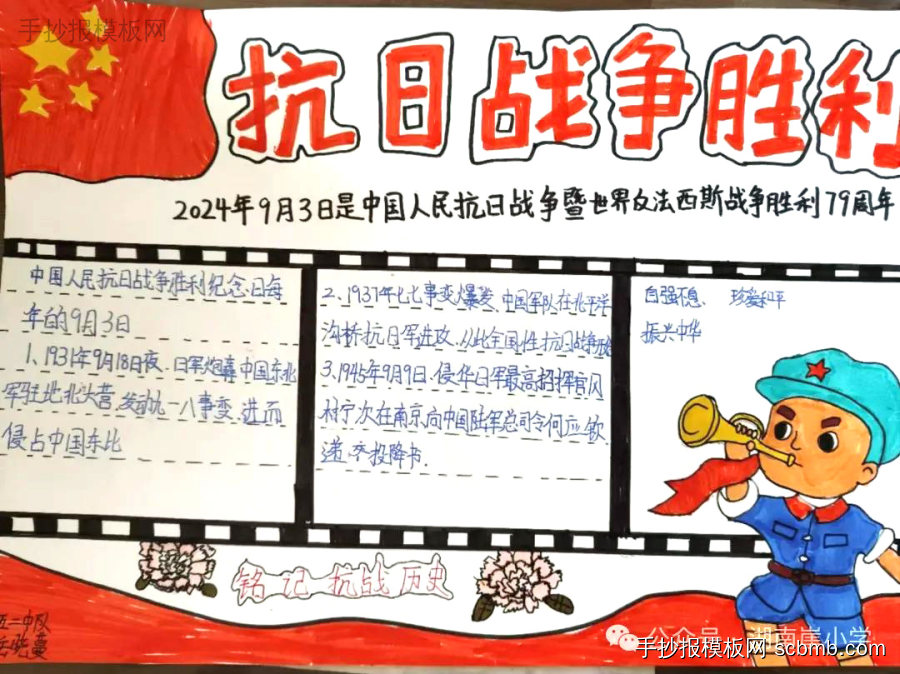 手抄报模板网
抗日战争胜利
2024年9月3日是中国人民抗日战争暨世界反法西斯战争胜利79周年
中国人民抗日战争胜利纪念日每
年的9月3日
1、1931年9月18日夜、日军炮轰中国东北
军驻地北大营、发动九一八事变、进而
侵占中国东北
2、1937年七七事变爆发、中国军队在北平学
沟桥抗日军进攻、从此全国性抗日战争开始
3、1945年9月9日、侵华日军最高招挥官冈
村宁次在南京向中国陆军总司令何应钦
递交投降书.
自强不息、 珍爱和平
振兴中华
铭记抗战历史
五二中队
公众号 湖南崖小学
手抄报模板网 scbmb.com